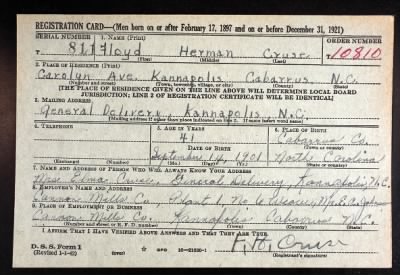 REGISTRATION CARD—(Men born on or after February 17, 1897 and on or before December 31, 1921)
SERIAL NUMBER 1. NAME (Print) ORDER NUMBER
T 811 Floyd Herman Cruse T 10810
(First) (Middle) (Last)
2. PLACE OF RESIDENCE (Print)
Carolyn Ave. Kannapolis Cabarrus N.C.
(Number and street) (Town, township, village, or city) (County) (State)
[THE PLACE OF RESIDENCE GIVEN ON THE LINE ABOVE WILL DETERMINE LOCAL BOARD
JURISDICTION; LINE 2 OF REGISTRATION CERTIFICATE WILL BE IDENTICAL]
3. MAILING ADDRESS
General Delivery Kannapolis N.C.
[Mailing address if other than place indicated on line 2. If same insert word same]
4. TELEPHONE 5. AGE IN YEARS 6. PLACE OF BIRTH
41 Cabarrus Co.
DATE OF BIRTH (Town or county)
September 14, 1901 North Carolina
(Exchange) (Number) (Mo.) (Day) (Yr.) (State or country)
7. NAME AND ADDRESS OF PERSON WHO WILL ALWAYS KNOW YOUR ADDRESS
Mrs. Elma Cruse General Delivery, Kannapolis, N.C.
8. EMPLOYER'S NAME AND ADDRESS
Cannon Mills Co. Plant 1, No. 6 Weave, Mr.
9. PLACE OF EMPLOYMENT OR BUSINESS
Cannon Mills Co. Kannapolis Cabarrus N.C.
(Number and street or R. F. D. number) (Town) (County) (State)
I AFFIRM THAT I HAVE VERIFIED ABOVE ANSWERS AND THAT THEY ARE TRUE.
D. S. S. Form 1
(Revised 1-1-42) (over) F. H. Cruse